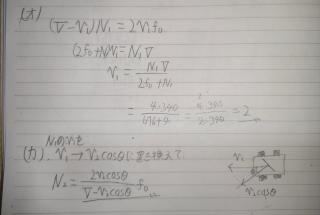 (オ)
(V-v₁)N₁=2v₁f₀
(2f₀+N₁)v₁=N₁V
v₁=N₁V/2f₀+N₁
=4・340/676+4=4・340/2・340=2
N₁のv₁を
(カ). v₁→v₂cosθに置き換えて
N₂=2v₂cosθ/V-v₂cosθ f₀
v₂
θ
v₂cosθ